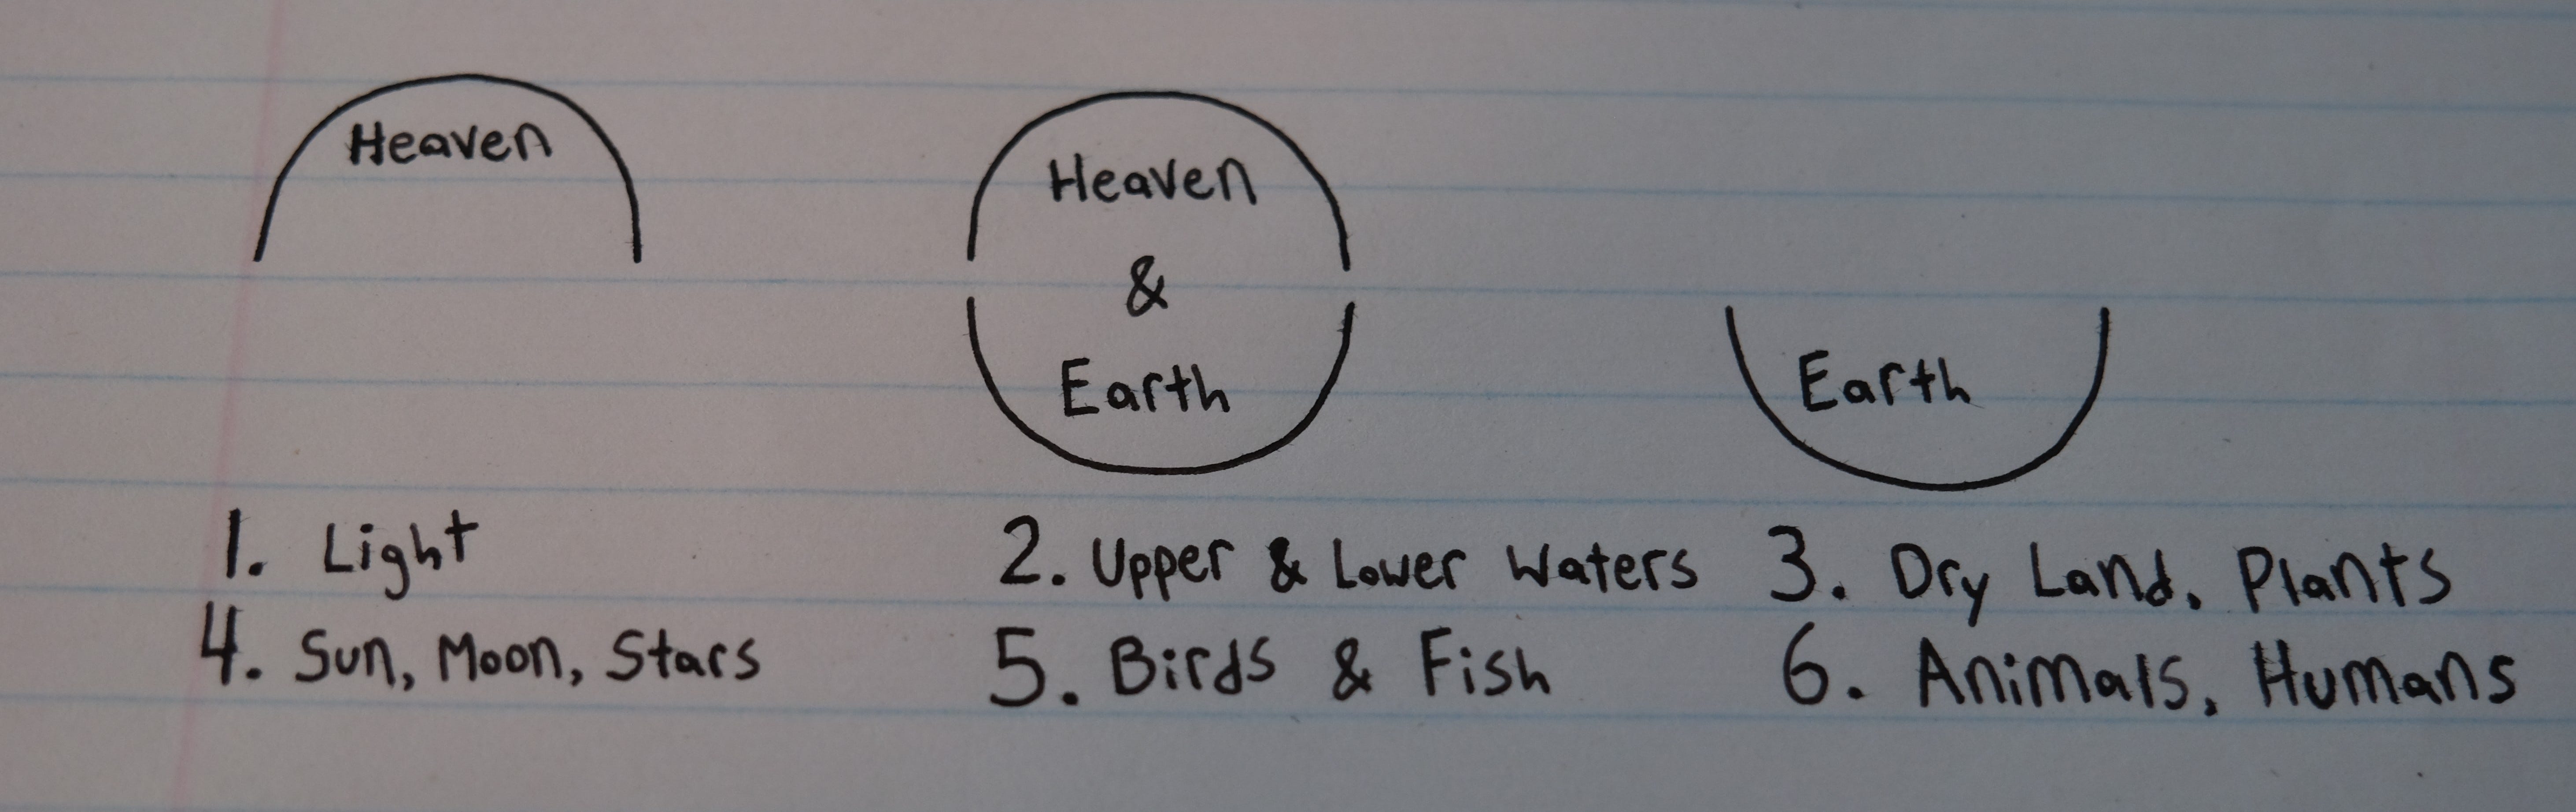 Heaven
Heaven
&
Earth
Earth
1. Light
2. Upper & Lower Waters
3. Dry Land, Plants
4. Sun, Moon, Stars
5. Birds & Fish
6. Animals, Humans